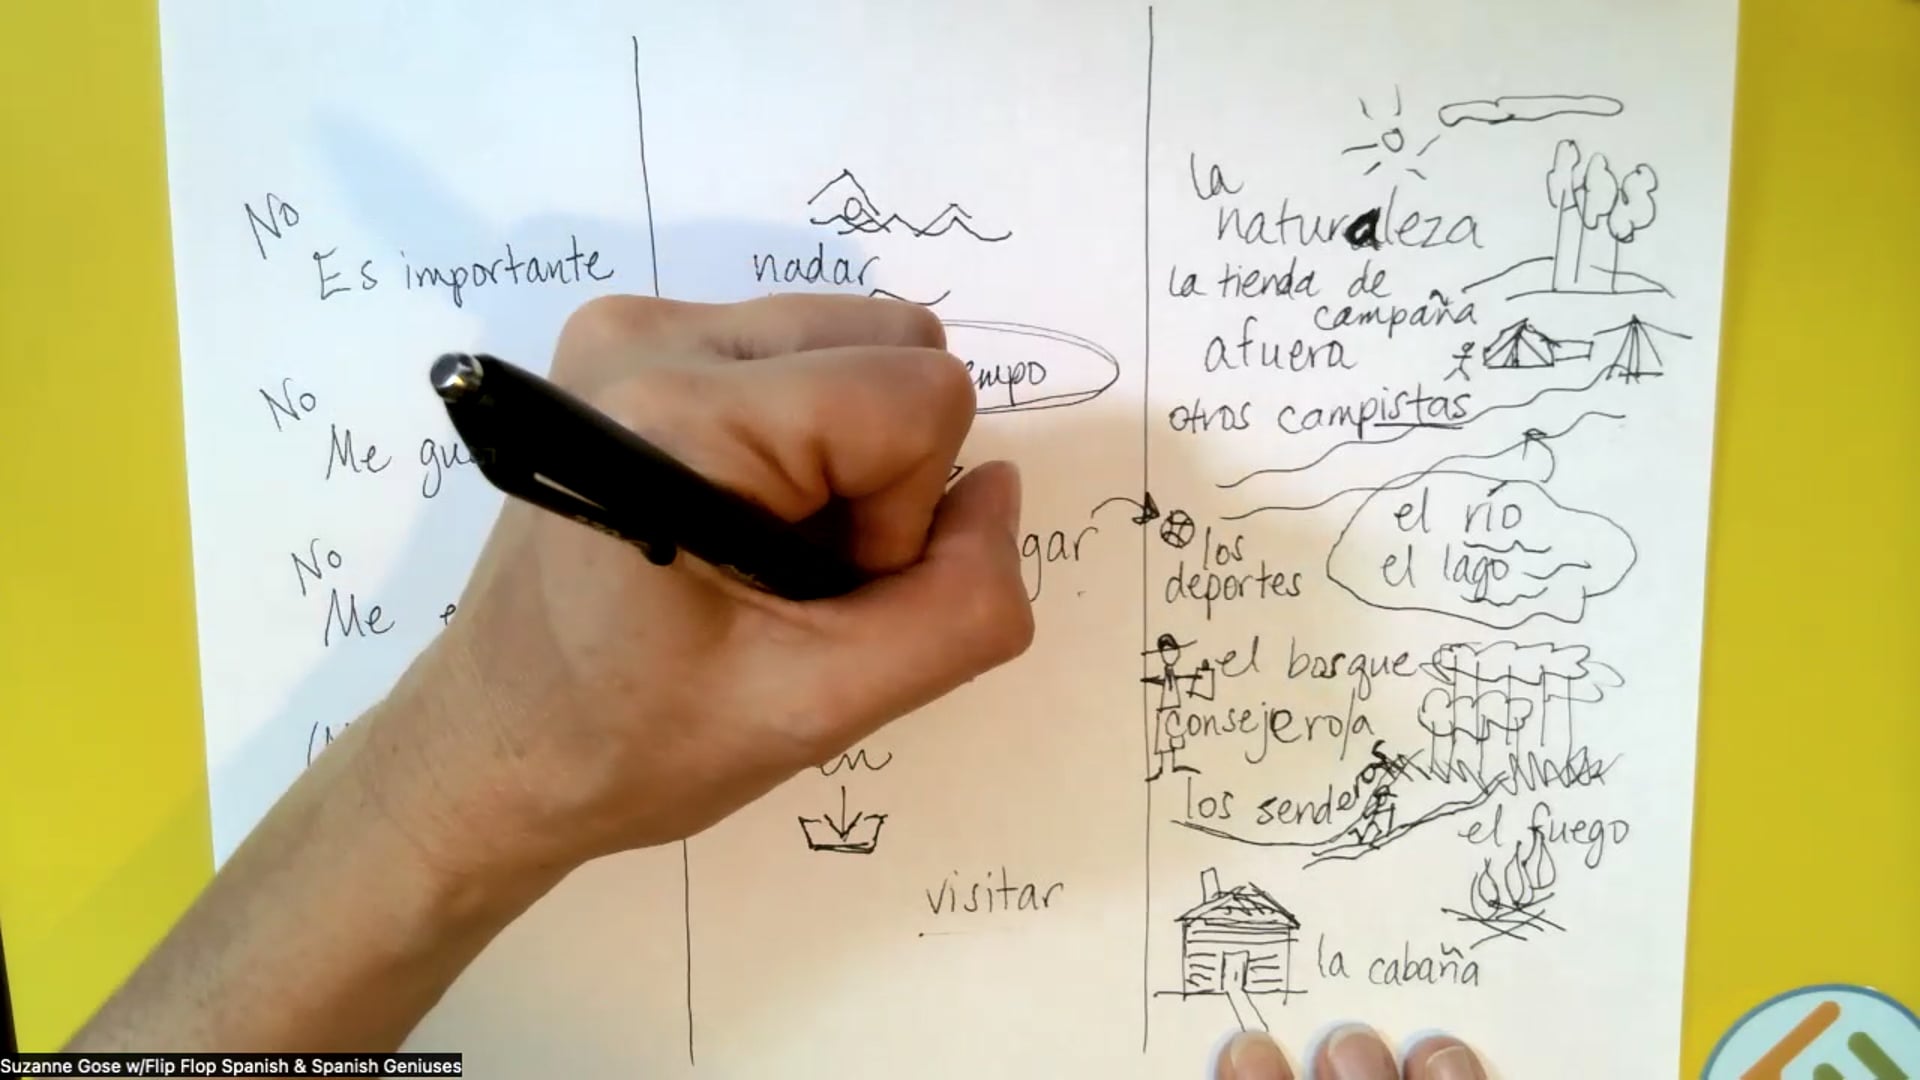 No
Es importante
No
Me
No
Me
nadar
en
visitar
la
naturaleza
la tienda de
campaña
afuera
otros campistas
el río
el lago
los
deportes
el bosque
consejero/a
los senderos
el fuego
la cabaña
Suzanne Gose w/Flip Flop Spanish & Spanish Geniuses